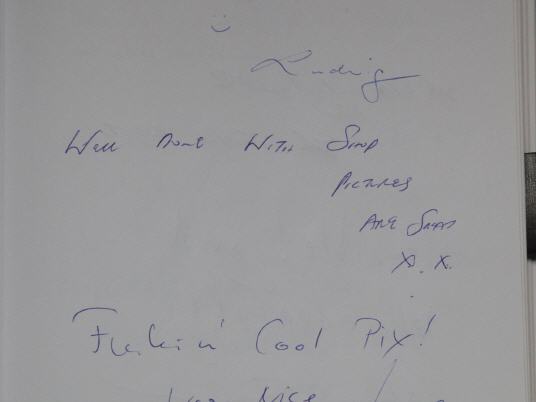 Ludwig
WELL DONE WITH SHOP
PICTURES
ARE GREAT
X. X.
Fuckin' Cool Pix!
Nice